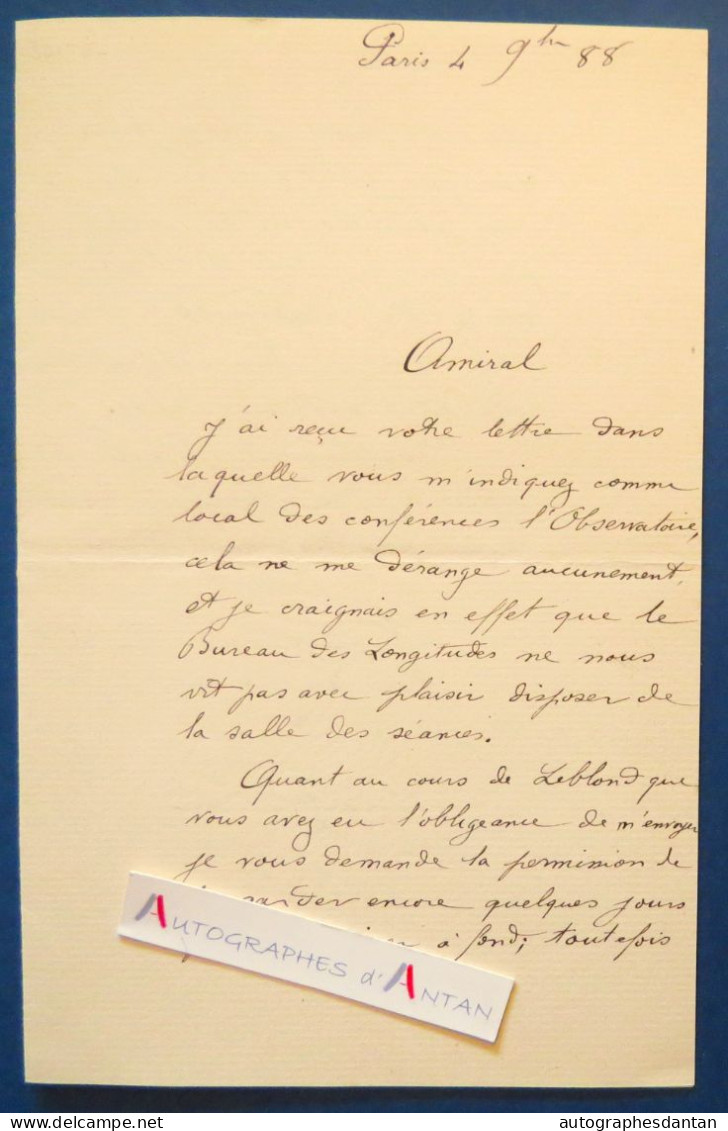 Paris 4 9bre 88
Amiral
J'ai reçu votre lettre dans
laquelle vous m'indiquez comme
local des conférences l'Observatoire,
cela ne me dérange aucunement,
et je craignais en effet que le
Bureau des Longitudes ne nous
vit pas avec plaisir disposer de
la salle des séances.
Quant au cours de Leblond que
vous avez eu l'obligeance de m'envoyer
je vous demande la permission de
encore quelques jours
à fond; toutefois
AUTOGRAPHES d'ANTAN
delcampe.net
autographesdantan